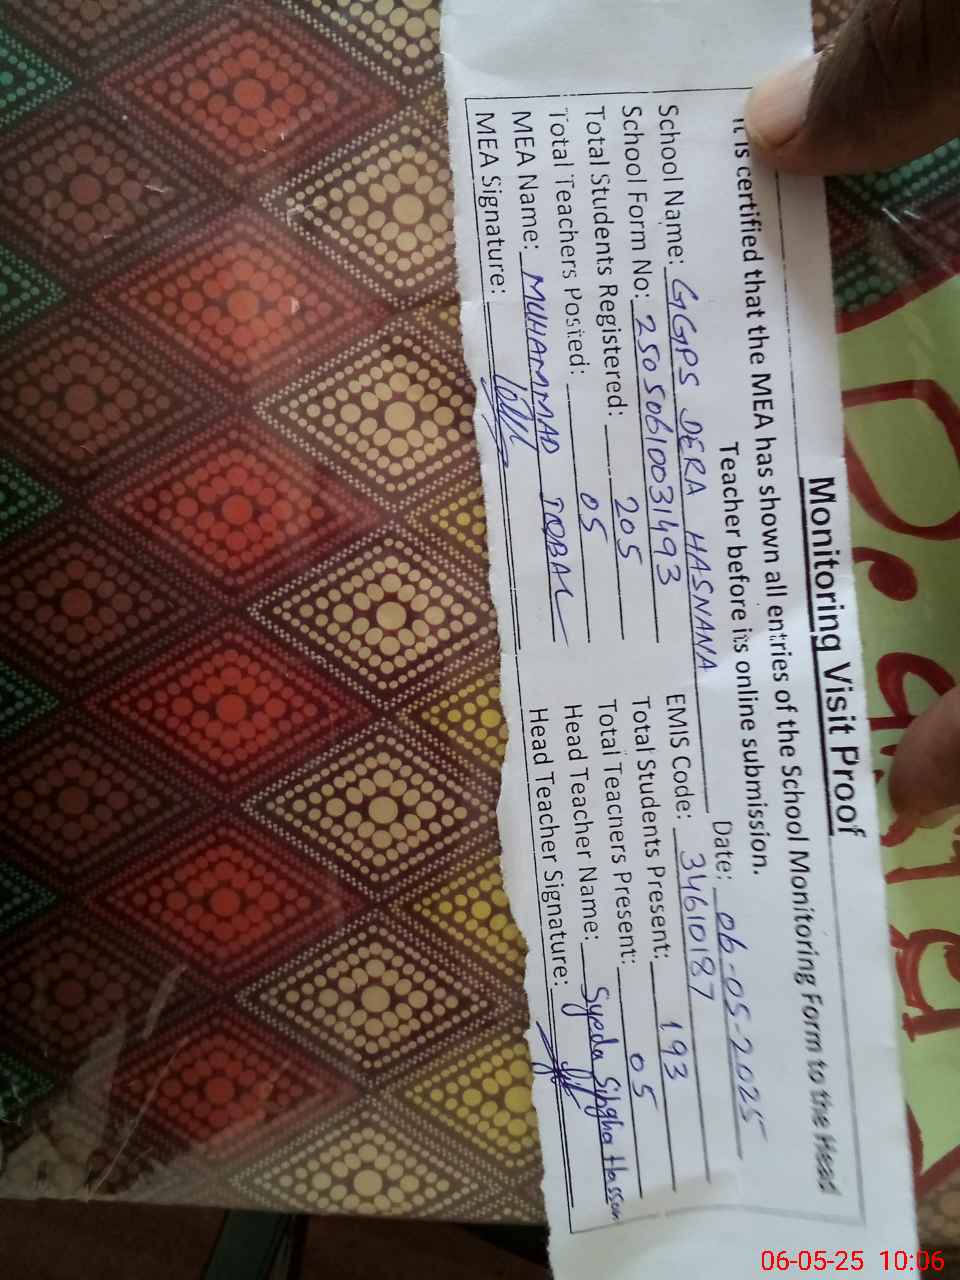 Monitoring Visit Proof
It is certified that the MEA has shown all entries of the School Monitoring Form to the Head
Teacher before its online submission.
Date: 06-05-2025
School Name: GGPS DERA HASNANA
School Form No: 25050610031493 EMIS Code: 34610187
Total Students Registered: 205 Total Students Present: 193
Total Teachers Posted: 05 Total Teachers Present: 05
MEA Name: MUHAMMAD IQBAL Head Teacher Name: Syeda Hassan
MEA Signature: Head Teacher Signature:
06-05-25 10:06